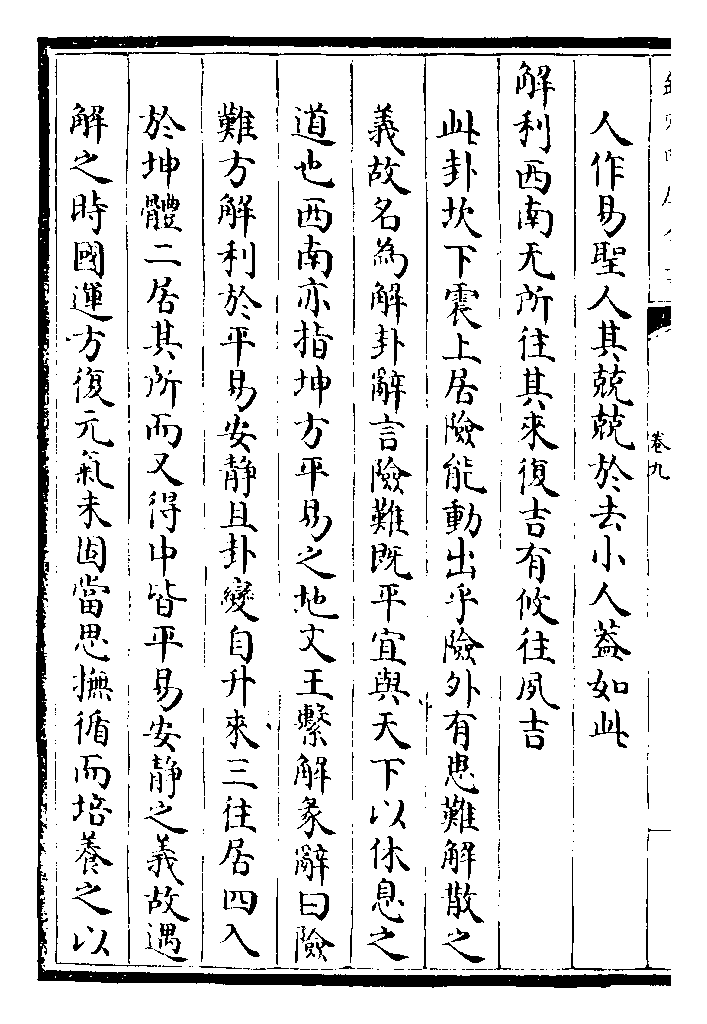 卷九
人作易聖人其兢兢於去小人蓋如此
解利西南无所往其來復吉有攸往夙吉
此卦坎下震上居險能動出乎險外有患難解散之
義故名為解卦辭言險難既平宜與天下以休息之
道也西南亦指坤方平易之地文王繫解彖辭曰險
難方解利於平易安静且卦變自升來三往居四入
於坤體二居其所而又得中皆平易安静之義故遇
解之時國運方復元氣未固當思撫循而培養之以